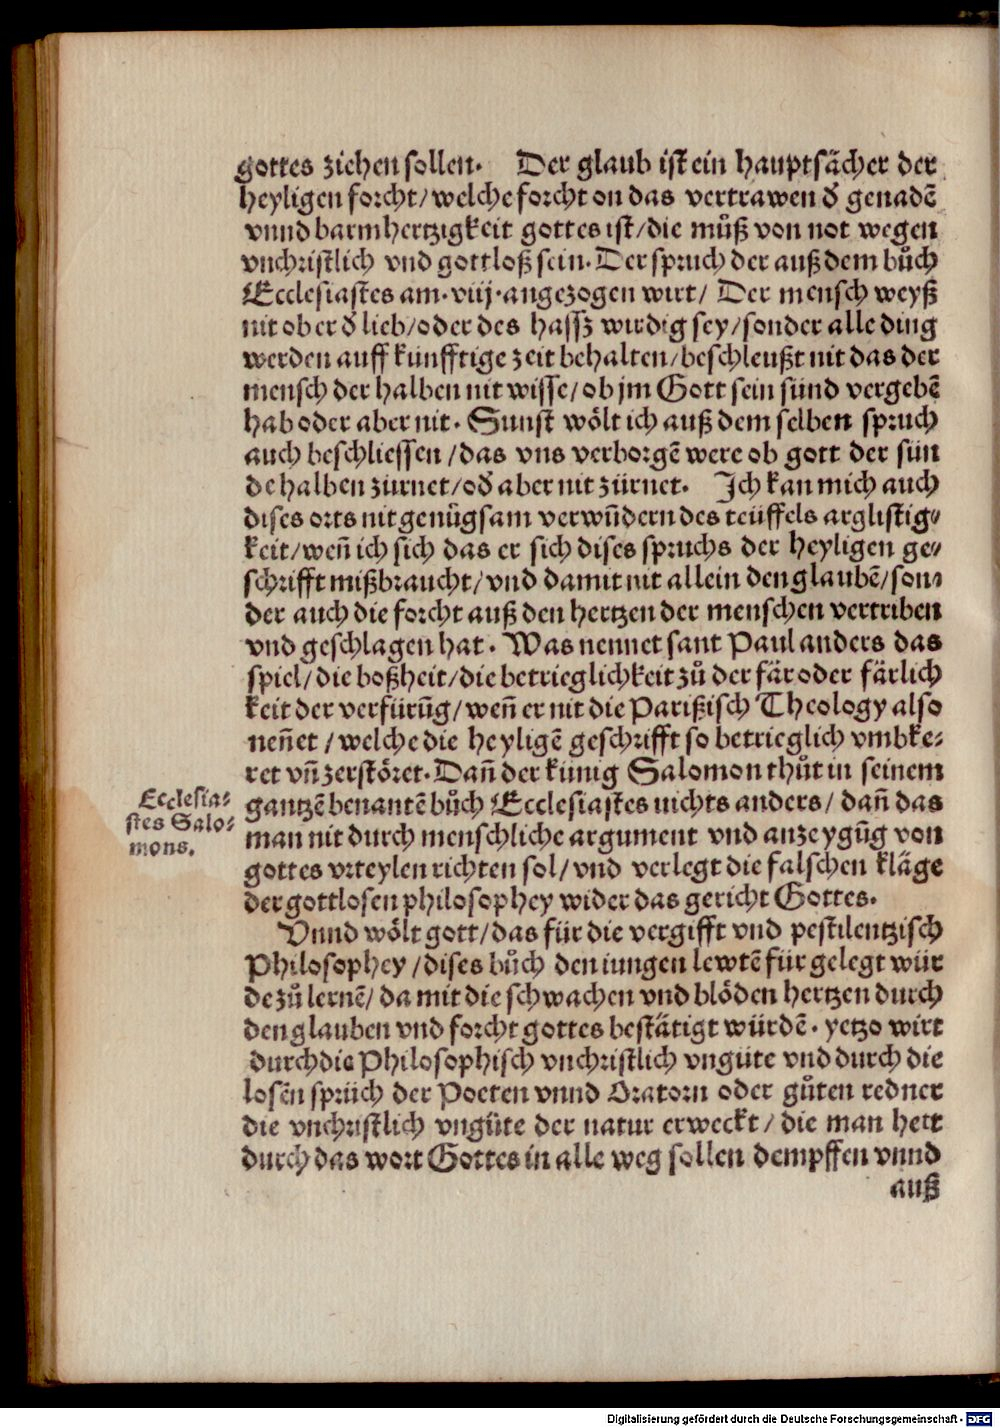 gottes ziehen sollen. Der glaub ist ein hauptsächer der
heyligen forcht/welche forcht on das vertrawen d̕ genadē
vnnd barmhertzigkeit gottes ist/die můß von not wegen
vnchristlich vnd gottloß sein. Der spruch der auß dem bůch
Ecclesiastes am. viij. angezogen wirt/ Der mensch weyß
nit ob er d̕ lieb/oder des hassz wirdig sey/sonder alle ding
werden auff künfftige zeit behalten/beschleußt nit das der
mensch der halben nit wisse/ob jm Gott sein sünd vergebē
hab oder aber nit. Sunst wölt ich auß dem selben spruch
auch beschliessen/das vns verborgē were ob gott der sün
de halben zürnet/od̕ aber nit zürnet. Ich kan mich auch
dises orts nit genůgsam verwūdern des teüffels arglistig⸗
keit/weñ ich sich das er sich dises spruchs der heyligen ge⸗
schrifft mißbraucht/vnd damit nit allein den glaubē/son⸗
der auch die forcht auß den hertzen der menschen vertriben
vnd geschlagen hat. Was nennet sant Paul anders das
spiel/die boßheit/die betrieglichkeit zů der fär oder färlich
keit der verfürūg/weñ er nit die Parißisch Theology also
neñet/welche die heyligē geschrifft so betrieglich vmbke⸗
ret vñ zerstöret. Dañ der künig Salomon thůt in seinem
Ecclesia⸗
stes Salo⸗
mons.
gantzē benantē bůch Ecclesiastes nichts anders/dañ das
man nit durch menschliche argument vnd anzeygūg von
gottes vrteylen richten sol/vnd verlegt die falschen kläge
der gottlosen philosophey wider das gericht Gottes.
Vnnd wölt gott/das für die vergifft vnd pestilentzisch
Philosophey/dises bůch den iungen lewtē für gelegt wür
de zů lernē/da mit die schwachen vnd blöden hertzen durch
den glauben vnd forcht gottes bestätigt würdē. yetzo wirt
durch die Philosophisch vnchristlich vngüte vnd durch die
losen sprüch der Poeten vnnd Oratorn oder gůten redner
die vnchristlich vngüte der natur erweckt/die man hett
durch das wort Gottes in alle weg sollen dempffen vnnd
auß
Digitalisierung gefördert durch die Deutsche Forschungsgemeinschaft - DFG